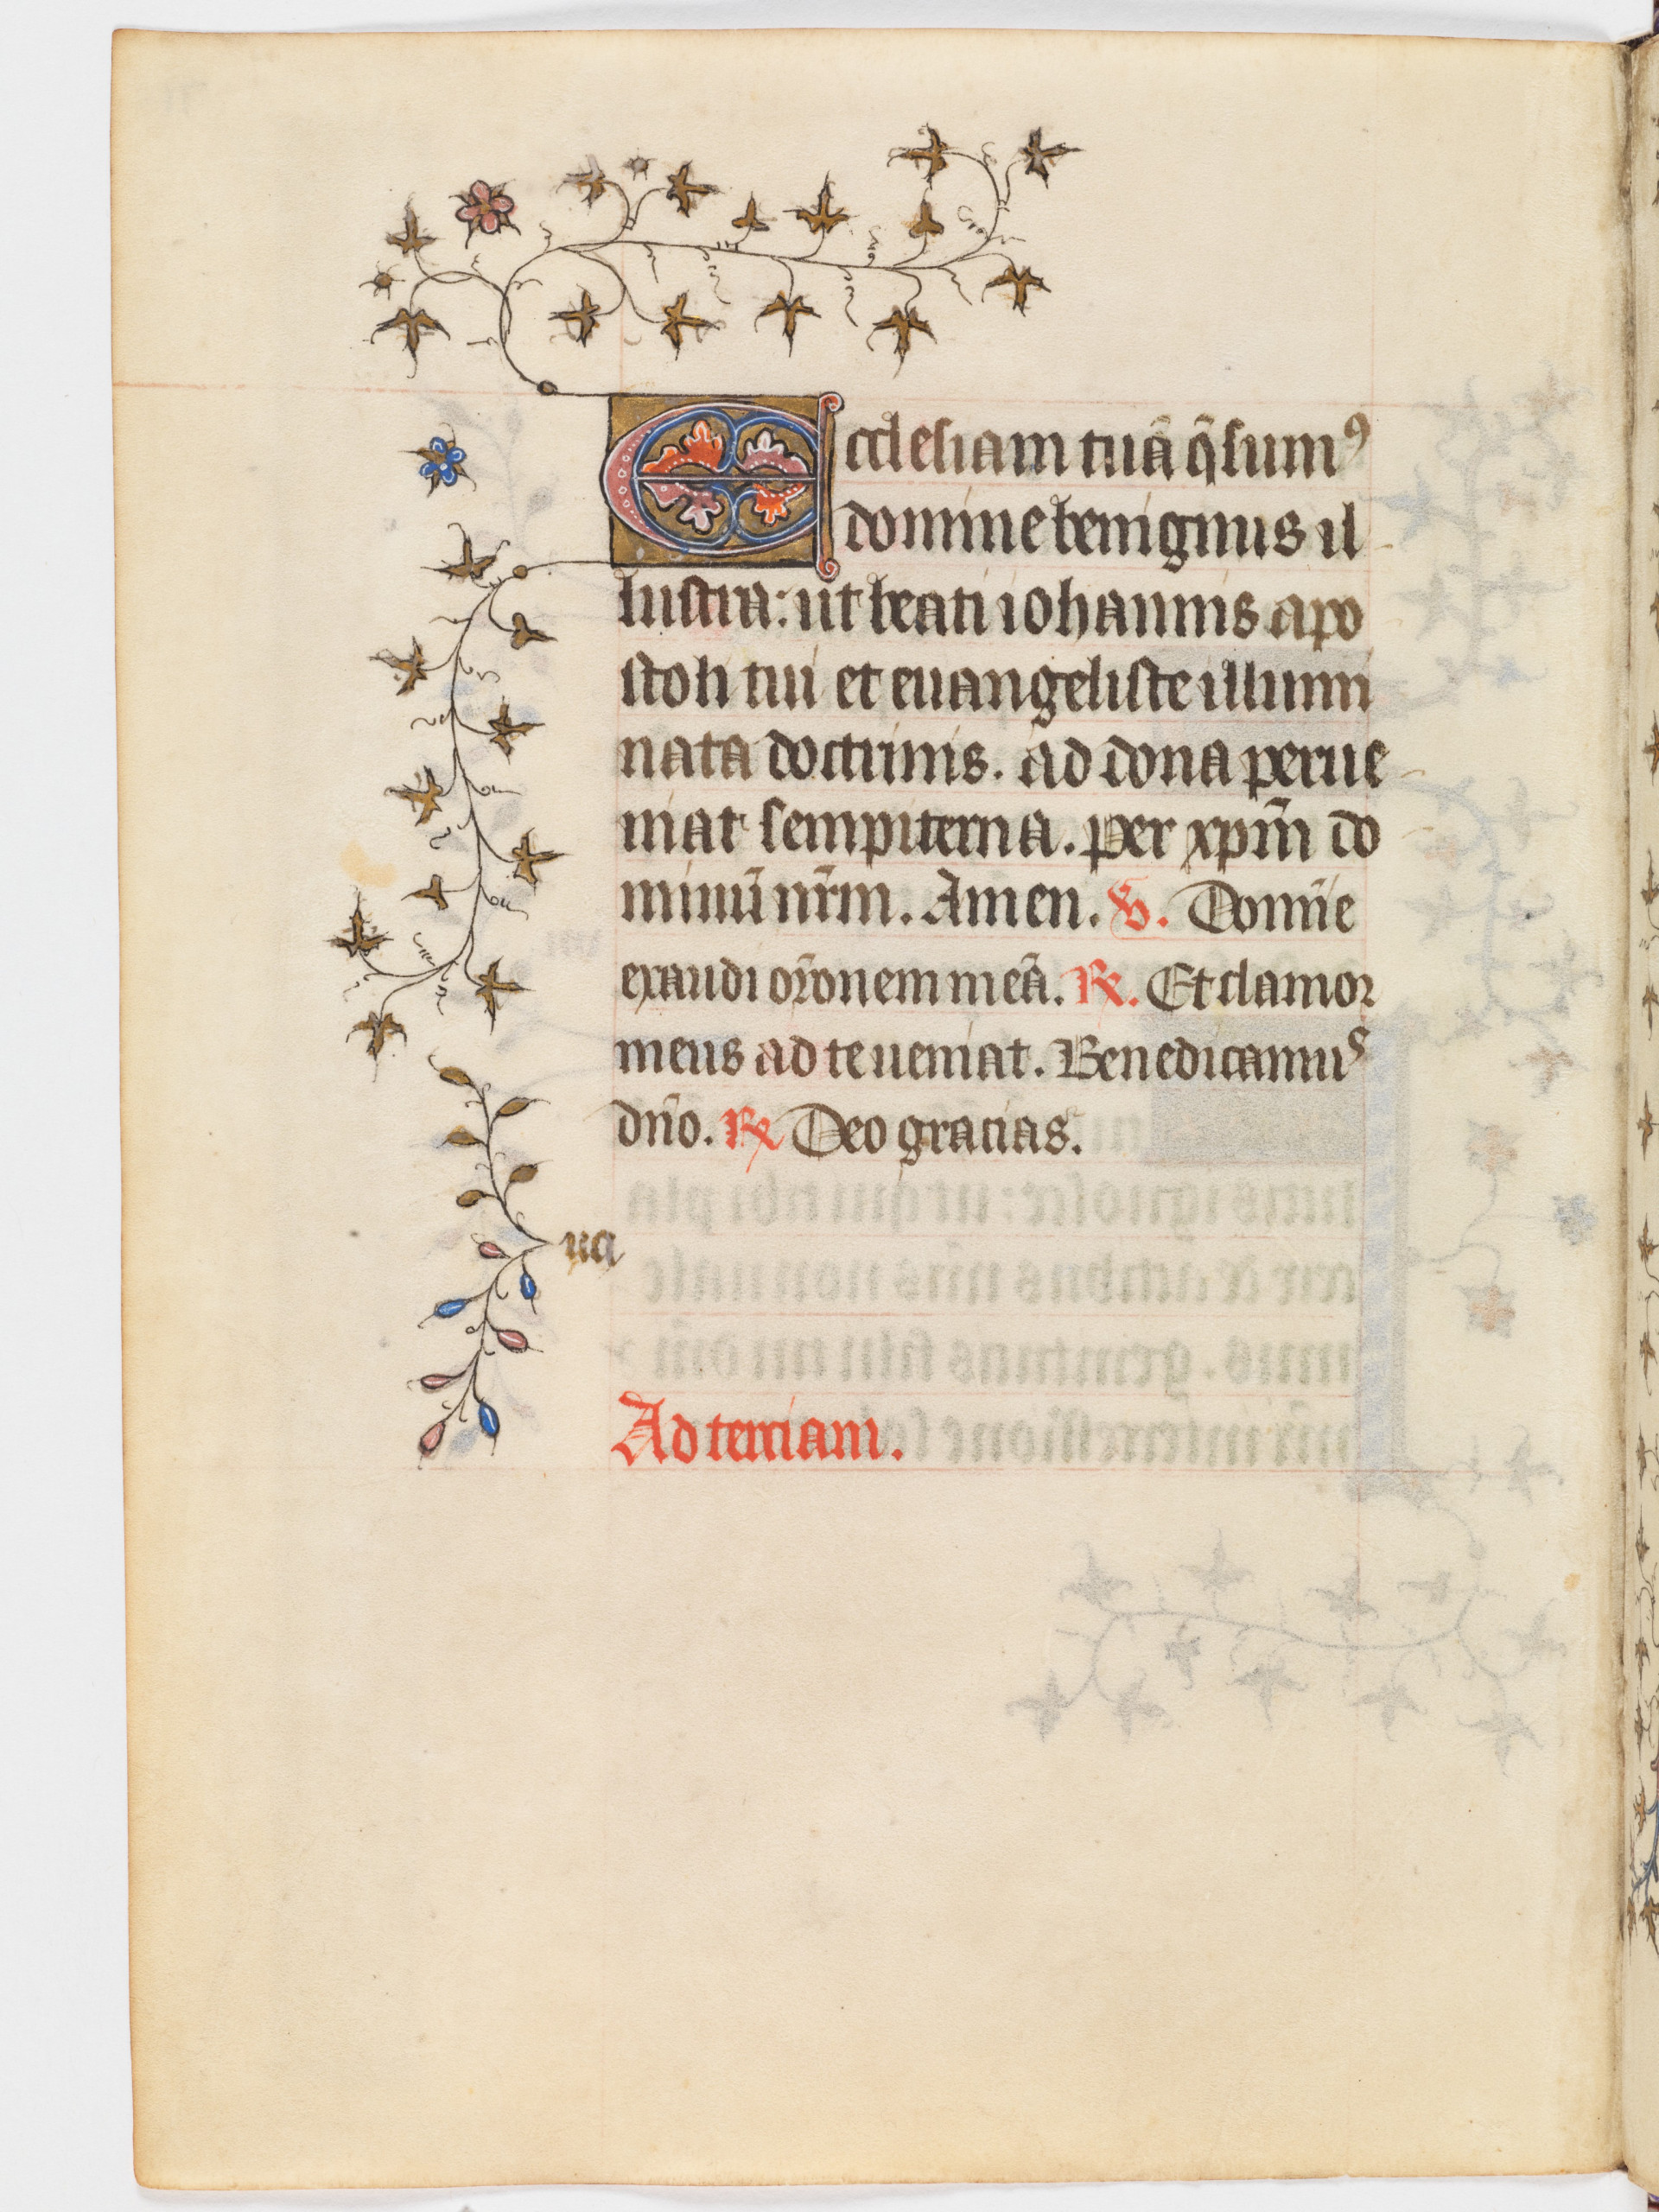 Ecclesiam tuā q̄sumꝯ
domine benignus il
lustra: ut beati iohannis apo
stoli tui et euangeliste illumi
nata doctrinis. ad dona perue
niat sempiterna. Per xp̄m do
minū nr̄m. Amen. V. Domīe
exaudi or̄onem meā. R. Et clamor
meus ad te ueniat. Benedicamus
dn̄o. R Deo gracias.
Ad terciam.